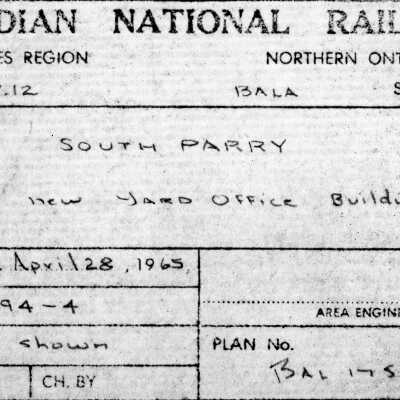 DIAN NATIONAL RAIL
ES REGION NORTHERN ONT
.12 BALA S
SOUTH PARRY
new YARD OFFICE Buildi
April 28, 1965
94-4
AREA ENGINE
shown PLAN No.
CH. BY BAL